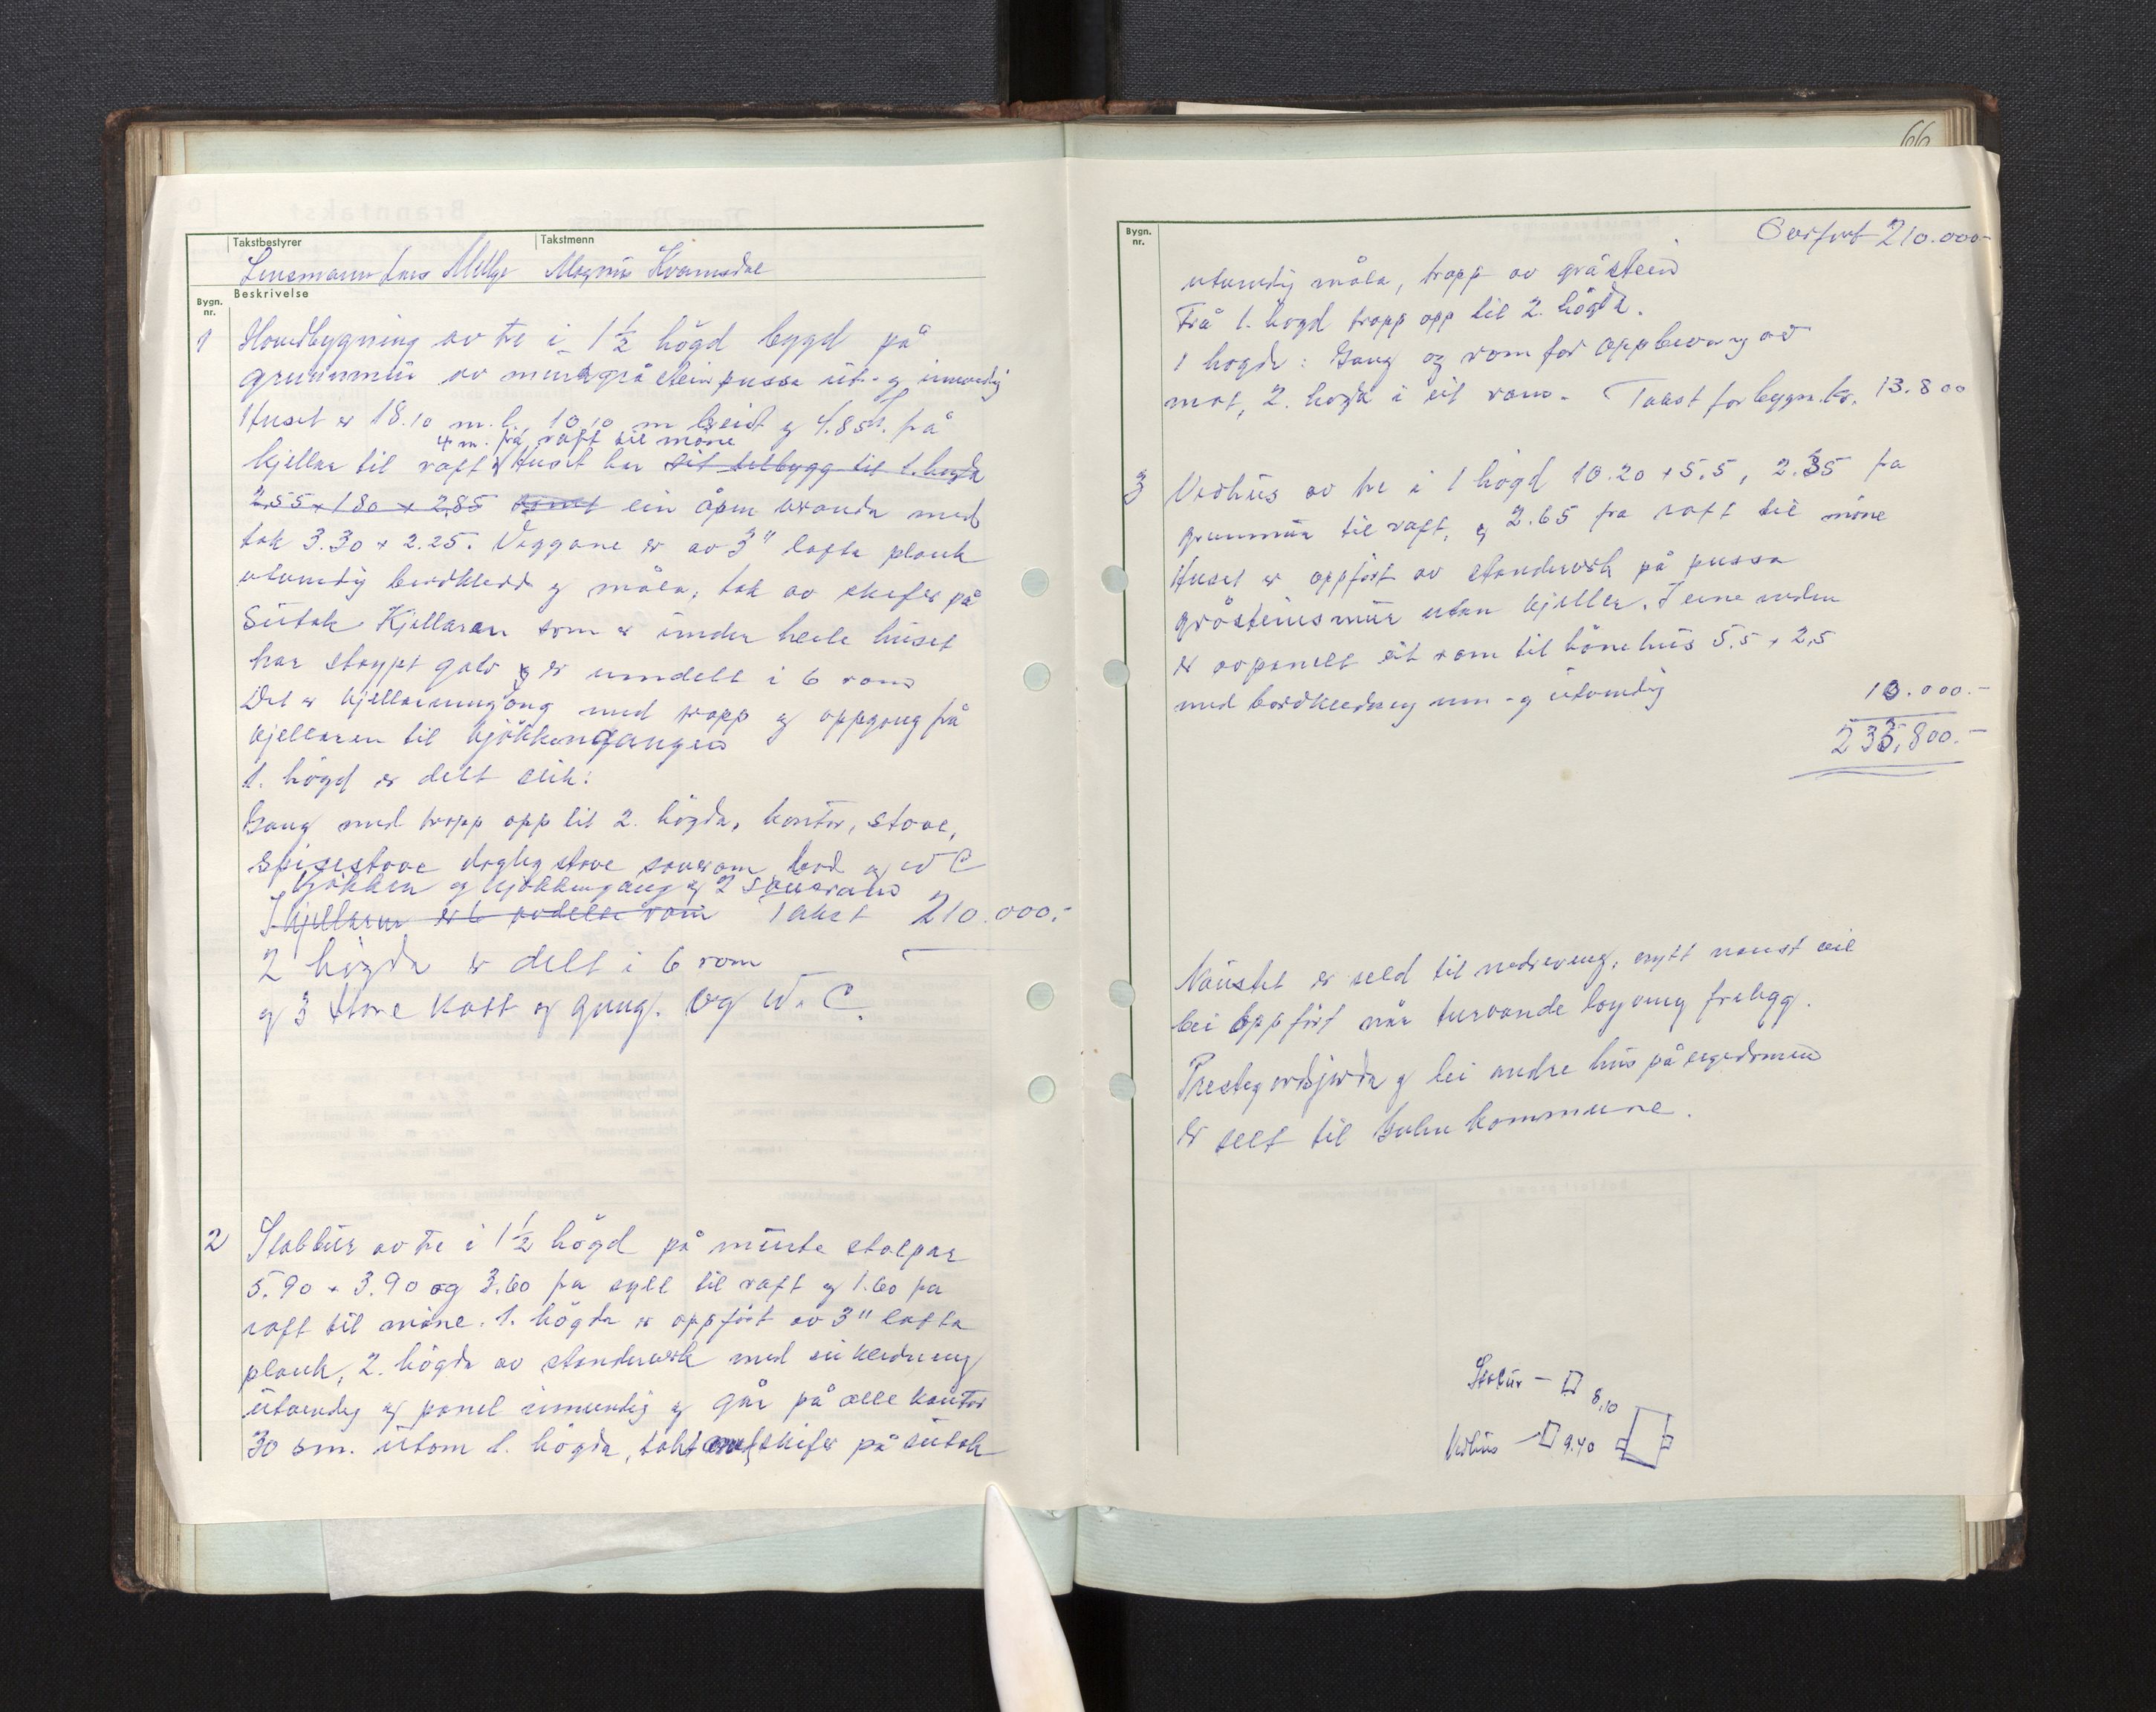 Takstbestyrer Takstmenn
Lensmann Lars Magnus Kvamsdal
Bygn. nr. Beskrivelse
1 Hovedbygning av tre i 1½ högd bygd på
grunnmur av gråstein pussa ut- og innvendig
Huset er 18.10 m. l. 10.10 m breidt og 4.85 frå
4 m. frå raft til möne
kjellar til raft Huset har eit tilbygg til 1. högda
2.55 x 180 x 2.85 ein åpen veranda med
tak 3.30 x 2.25. Veggane er av 3" lafta plank
utvendig bordkledd og måla, tak av skifer på
sutak Kjellaren som er under heile huset
har stöypt golv og er inndelt i 6 rom
Det er kjellarinngang med tropp og oppgang frå
kjellaren til kjökkengangen
1. högd er delt slik:
Gang med tropp opp til 2. högda, kontor, stove,
spisestove daglegstove soverom, bod og WC
Kjökken og kjökkengang og 2 soverom
I kjellaren er 6 avdelte rom Takst 210.000.-
2 högda er delt i 6 rom
og 3 store kott og gang. og W.C.
2 Stabbur av tre i 1½ högd på murte stolpar
5.90 x 3.90 og 3.60 fra syll til raft og 1.60 fra
raft til möne. 1. högda er oppfört av 3" lafta
plank, 2. högda av standverk med kledning
utvendig og panel innvendig og går på alle kantar
30 sm. utom 1. högda, takt skifer på sutak
66
Bygn. nr.
Overfört 210.000-
utvendig måla, tropp av gråstein
Frå 1. högd tropp opp til 2. högda.
1 högda: Gang og rom for oppbevaring av
mat, 2. högda i eit rom. Takst for bygn. kr. 13.800
3 Vedhus av tre i 1 högd 10.20 x 5.5, 2.35 fra
grunnmur til raft, og 2.65 fra raft til möne
Huset er oppfört av standverk på pussa
gråsteinsmur utan kjellar. I eine enden
er avpanelt eit rom til hönehus 5.5 x 2.5
med bordkledning inn- og utvendig
10.000.-
235,800.-
Naustet er seld til nedriving, nytt naust vil
bli oppfört når turvande löyving freligg.
Prestegardsjorda og dei andre hus på eigedomen
er selt til Gulen kommune.
Stabur – 8,10
Vedhus – 9.40